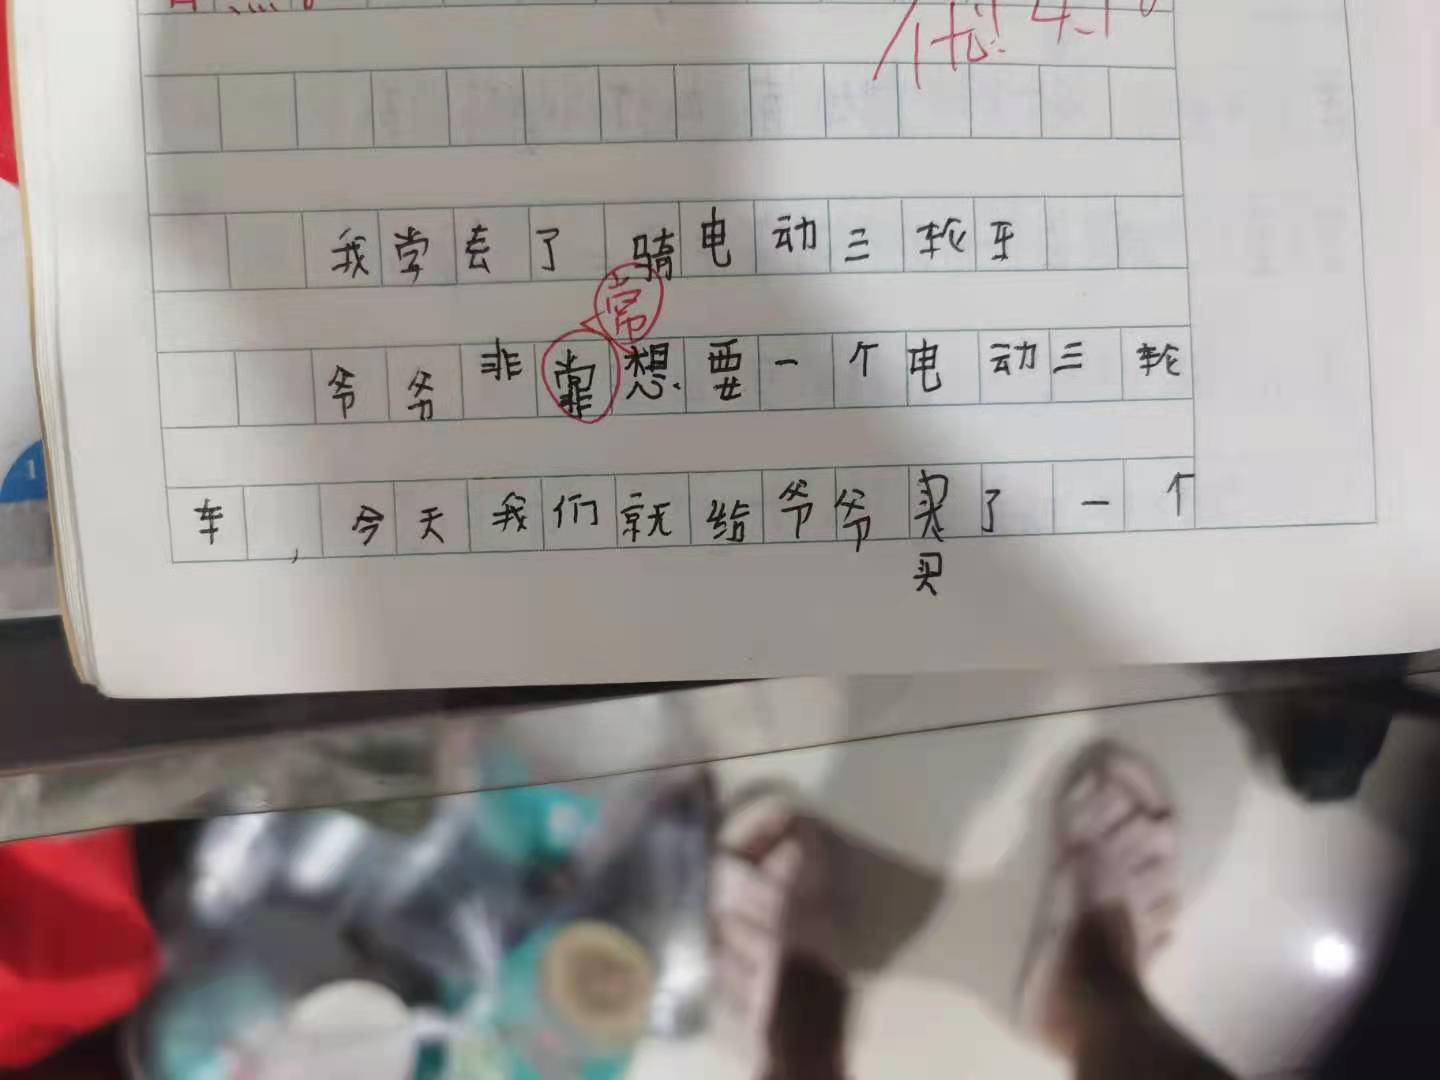 优!
我学去了骑电动三轮车
常
爷爷非想要一个电动三轮
车,今天我们就给爷爷买了一个
买